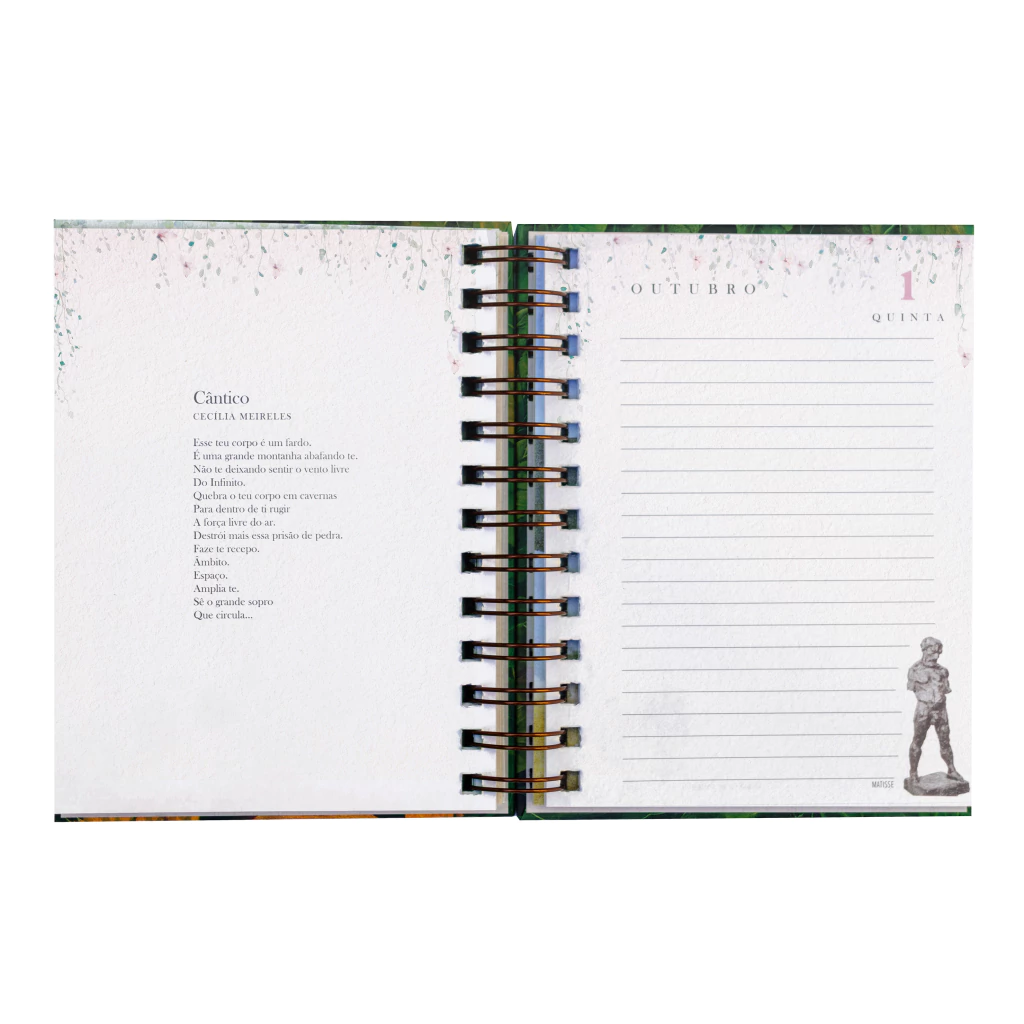 Cântico
CECÍLIA MEIRELES
Esse teu corpo é um fardo.
É uma grande montanha abafando te.
Não te deixando sentir o vento livre
Do Infinito.
Quebra o teu corpo em cavernas
Para dentro de ti rugir
A força livre do ar.
Destrói mais essa prisão de pedra.
Faze te recepo.
Âmbito.
Espaço.
Amplia te.
Sê o grande sopro
Que circula...
OUTUBRO
1
QUINTA
MATISSE